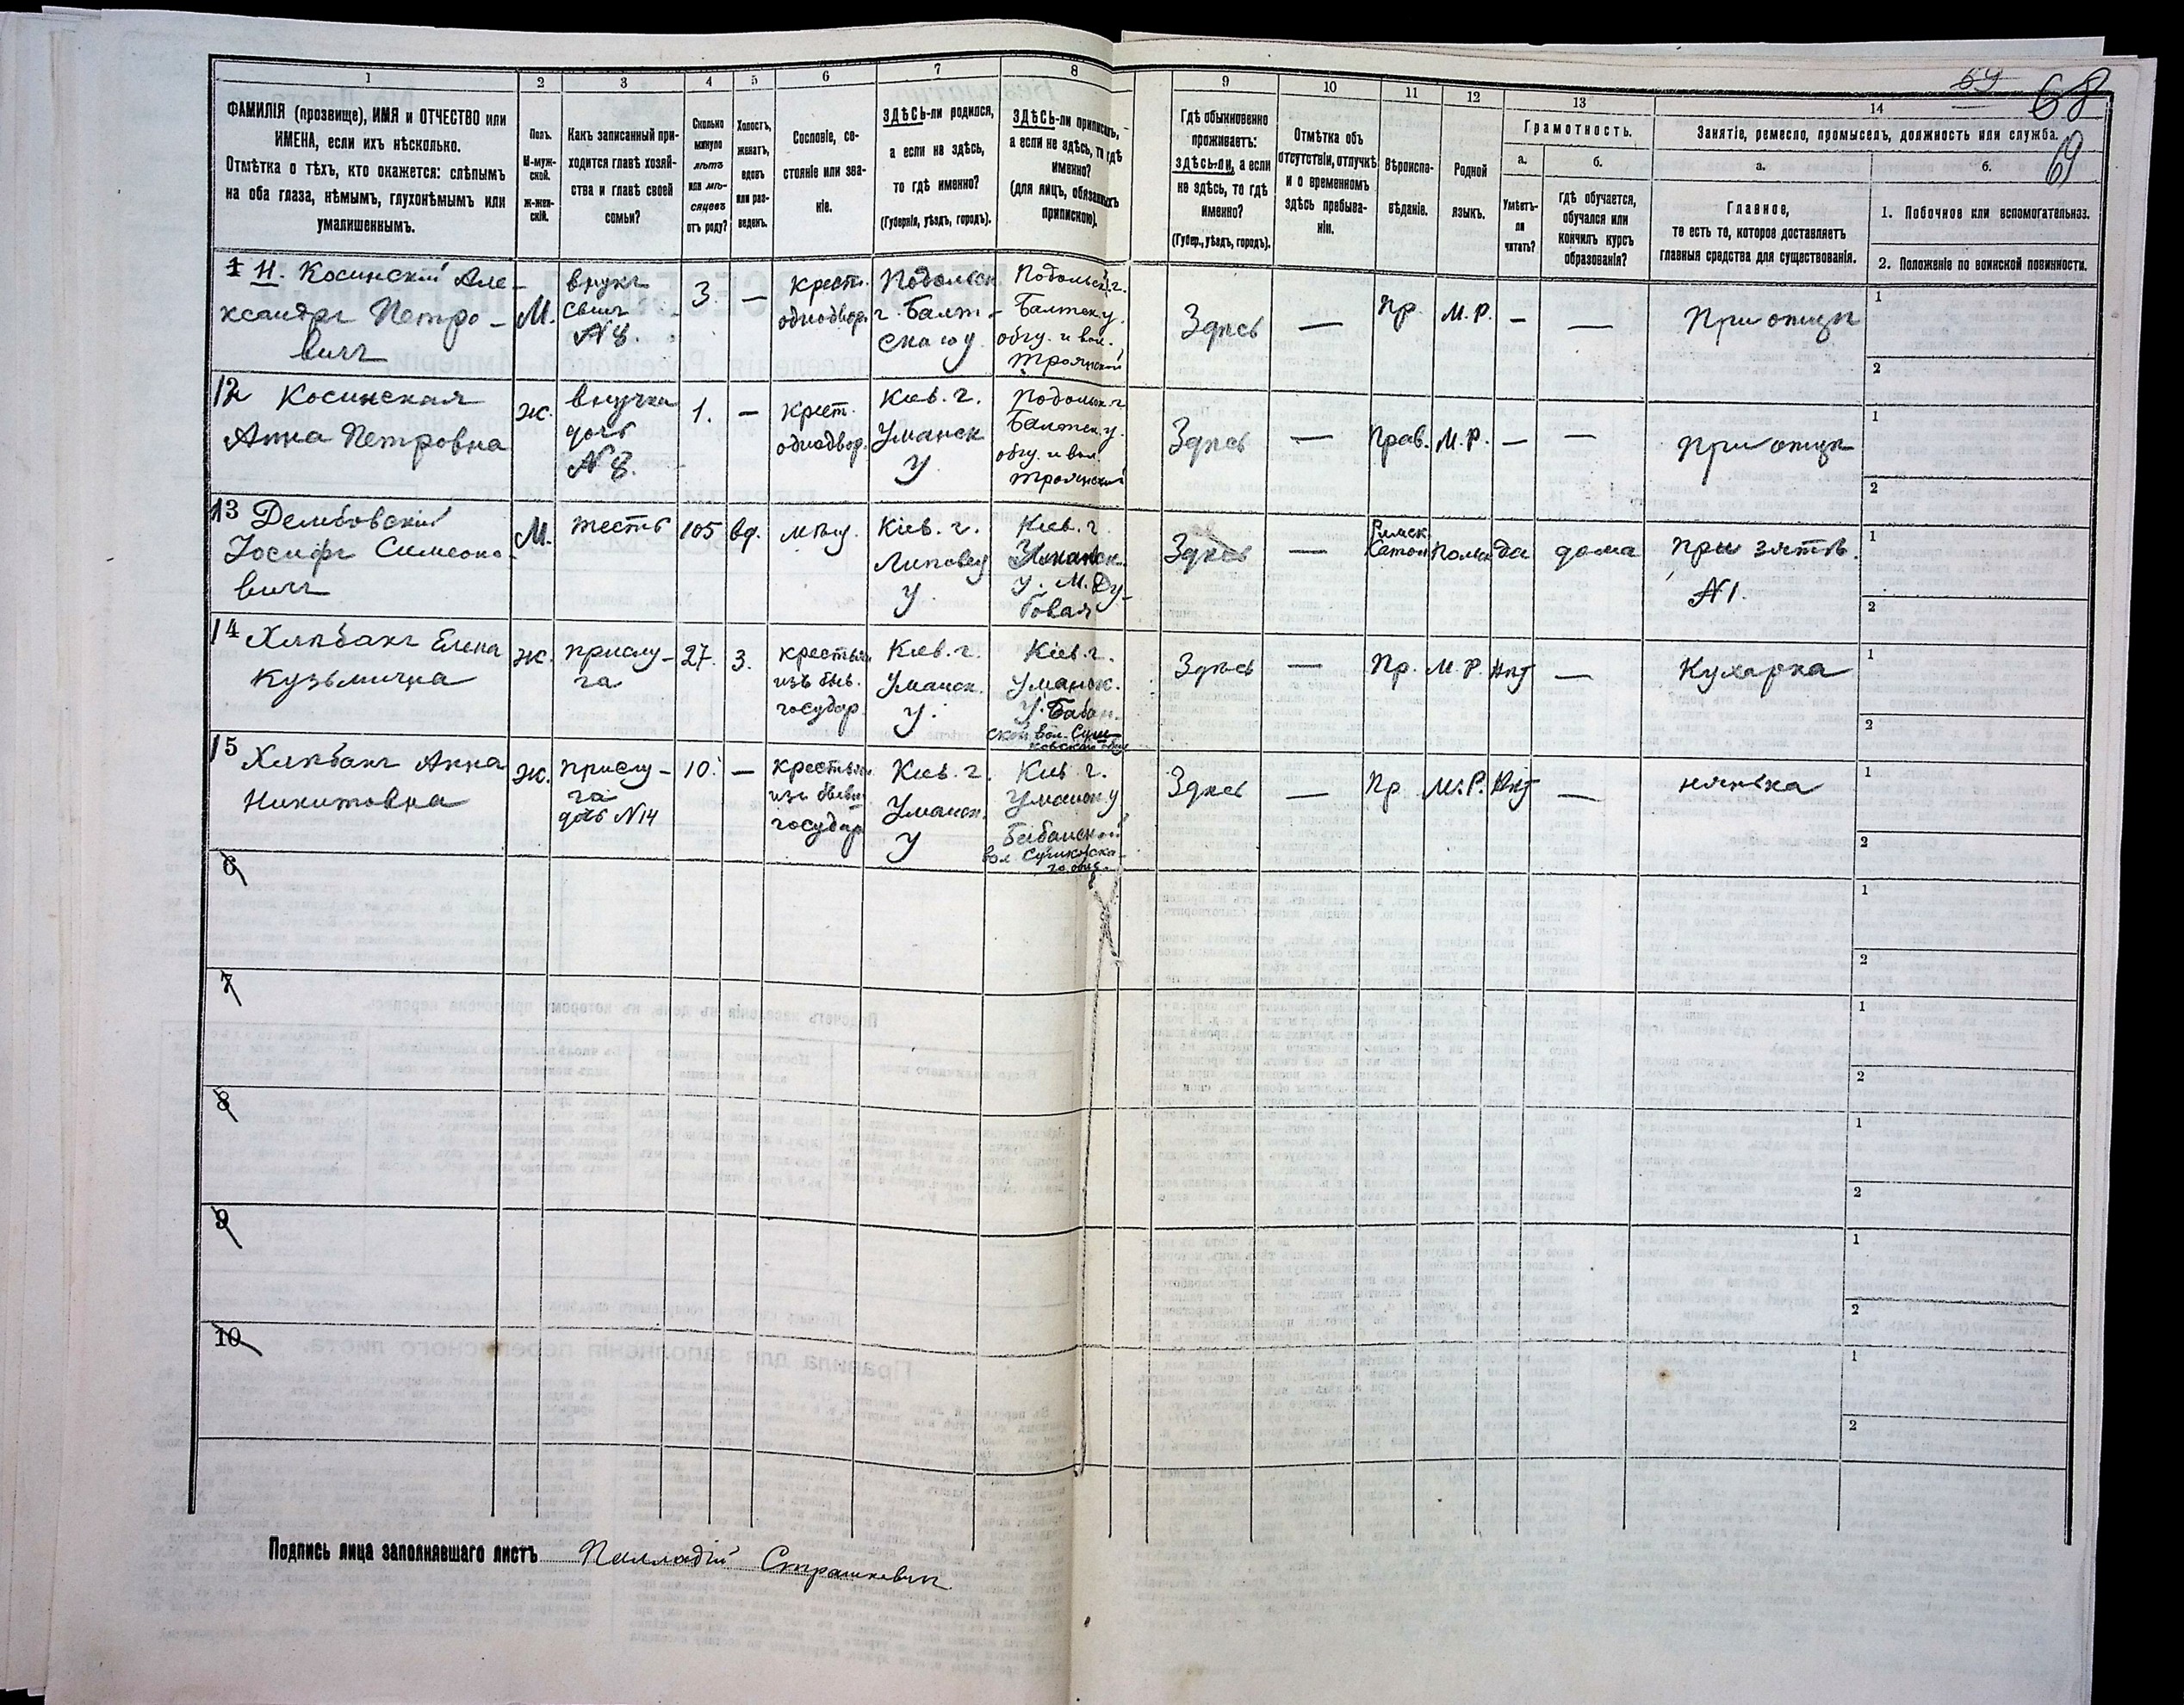 59
68
69
1
2
3
4
5
6
7
8
9
10
11
12
13
14
ФАМИЛІЯ (прозвище), ИМЯ и ОТЧЕСТВО или
ИМЕНА, если ихъ нѣсколько.
Отмѣтка о тѣхъ, кто окажется: слѣпымъ
на оба глаза, нѣмымъ, глухонѣмымъ или
умалишеннымъ.
Полъ.
М-муж-
ской.
ж-жен-
скій.
Какъ записанный при-
ходится главѣ хозяй-
ства и главѣ своей
семьи?
Сколько
минуло
лѣтъ
или мѣ-
сяцевъ
отъ роду?
Холостъ,
женатъ,
вдовъ
или раз-
веденъ.
Сословіе, со-
стояніе или зва-
ніе.
ЗДѢСЬ-ли родился,
а если не здѣсь,
то гдѣ именно?
(Губернія, уѣздъ, городъ).
ЗДѢСЬ-ли приписанъ,
а если не здѣсь, то гдѣ
именно?
(для лицъ, обязанныхъ
припискою).
Гдѣ обыкновенно
проживаетъ:
здѣсь-ли, а если
не здѣсь, то гдѣ
именно?
(Губер., уѣздъ, городъ).
Отмѣтка объ
отсутствіи, отлучкѣ
и о временномъ
здѣсь пребыва-
ніи.
Вѣроиспо-
вѣданіе.
Родной
языкъ.
Грамотность.
а.
б.
Умѣетъ-
ли
читать?
гдѣ обучается,
обучался или
кончилъ курсъ
образованія?
Занятіе, ремесло, промыселъ, должность или служба.
а.
б.
Главное,
то есть то, которое доставляетъ
главныя средства для существованія.
1. Побочное или вспомогательное.
2. Положеніе по воинской повинности.
1 11. Косинскій Але-
ксандръ Петро-
вичъ
М.
внукъ
сынъ
№ 8.
3.
—
крест.
однодвор.
Подольск
г. Балт-
скаго у
Подольск. г.
Балтск. у.
общ. и вол.
Троянской
Здѣсь
—
Пр.
М. Р.
—
—
При отцѣ
1
2
12 Косинская
Анна Петровна
Ж.
внучка
дочь
№ 8.
1.
—
крест.
однодвор.
Кіев. г.
Уманск
у
Подольск. г
Балтск. у.
общ. и вол
Троянской
Здѣсь
—
Прав.
М. Р.
—
—
при отцѣ
1
2
13 Дембовскій
Іосифъ Симеоно-
вичъ
М.
тесть
105
вд.
мѣщ.
Кіев. г.
Липовец
у.
Кіев. г.
Уманск.
у. М. Ду-
бовая
Здѣсь
—
Римск
Катол
Польск
да
дома
при зятѣ.
№ 1.
1
2
14 Хлѣбакъ Елена
Кузьмична
Ж.
прислу-
га
27.
З.
крестьян
изъ быв.
государ.
Кіев. г.
Уманск.
у.
Кіев. г.
Уманск.
у. Бабан-
ской вол. Суш-
ковской общ
Здѣсь
—
Пр.
М. Р.
Нѣт
—
Кухарка
1
2
15 Хлѣбакъ Анна
Никитовна
Ж.
прислу-
га
дочь № 14
10.
—
крестьян
изъ бывш
государ
Кіев. г.
Уманск.
у
Кіев. г.
Уманск. у
Бабанской
вол. Сушковска-
го общ.
Здѣсь
—
Пр
М. Р.
Нѣт
—
нянька
1
2
6
1
2
7
1
2
8
1
2
9
1
2
10
1
2
Подпись лица заполнявшаго листъ Палладій Страшкевичъ